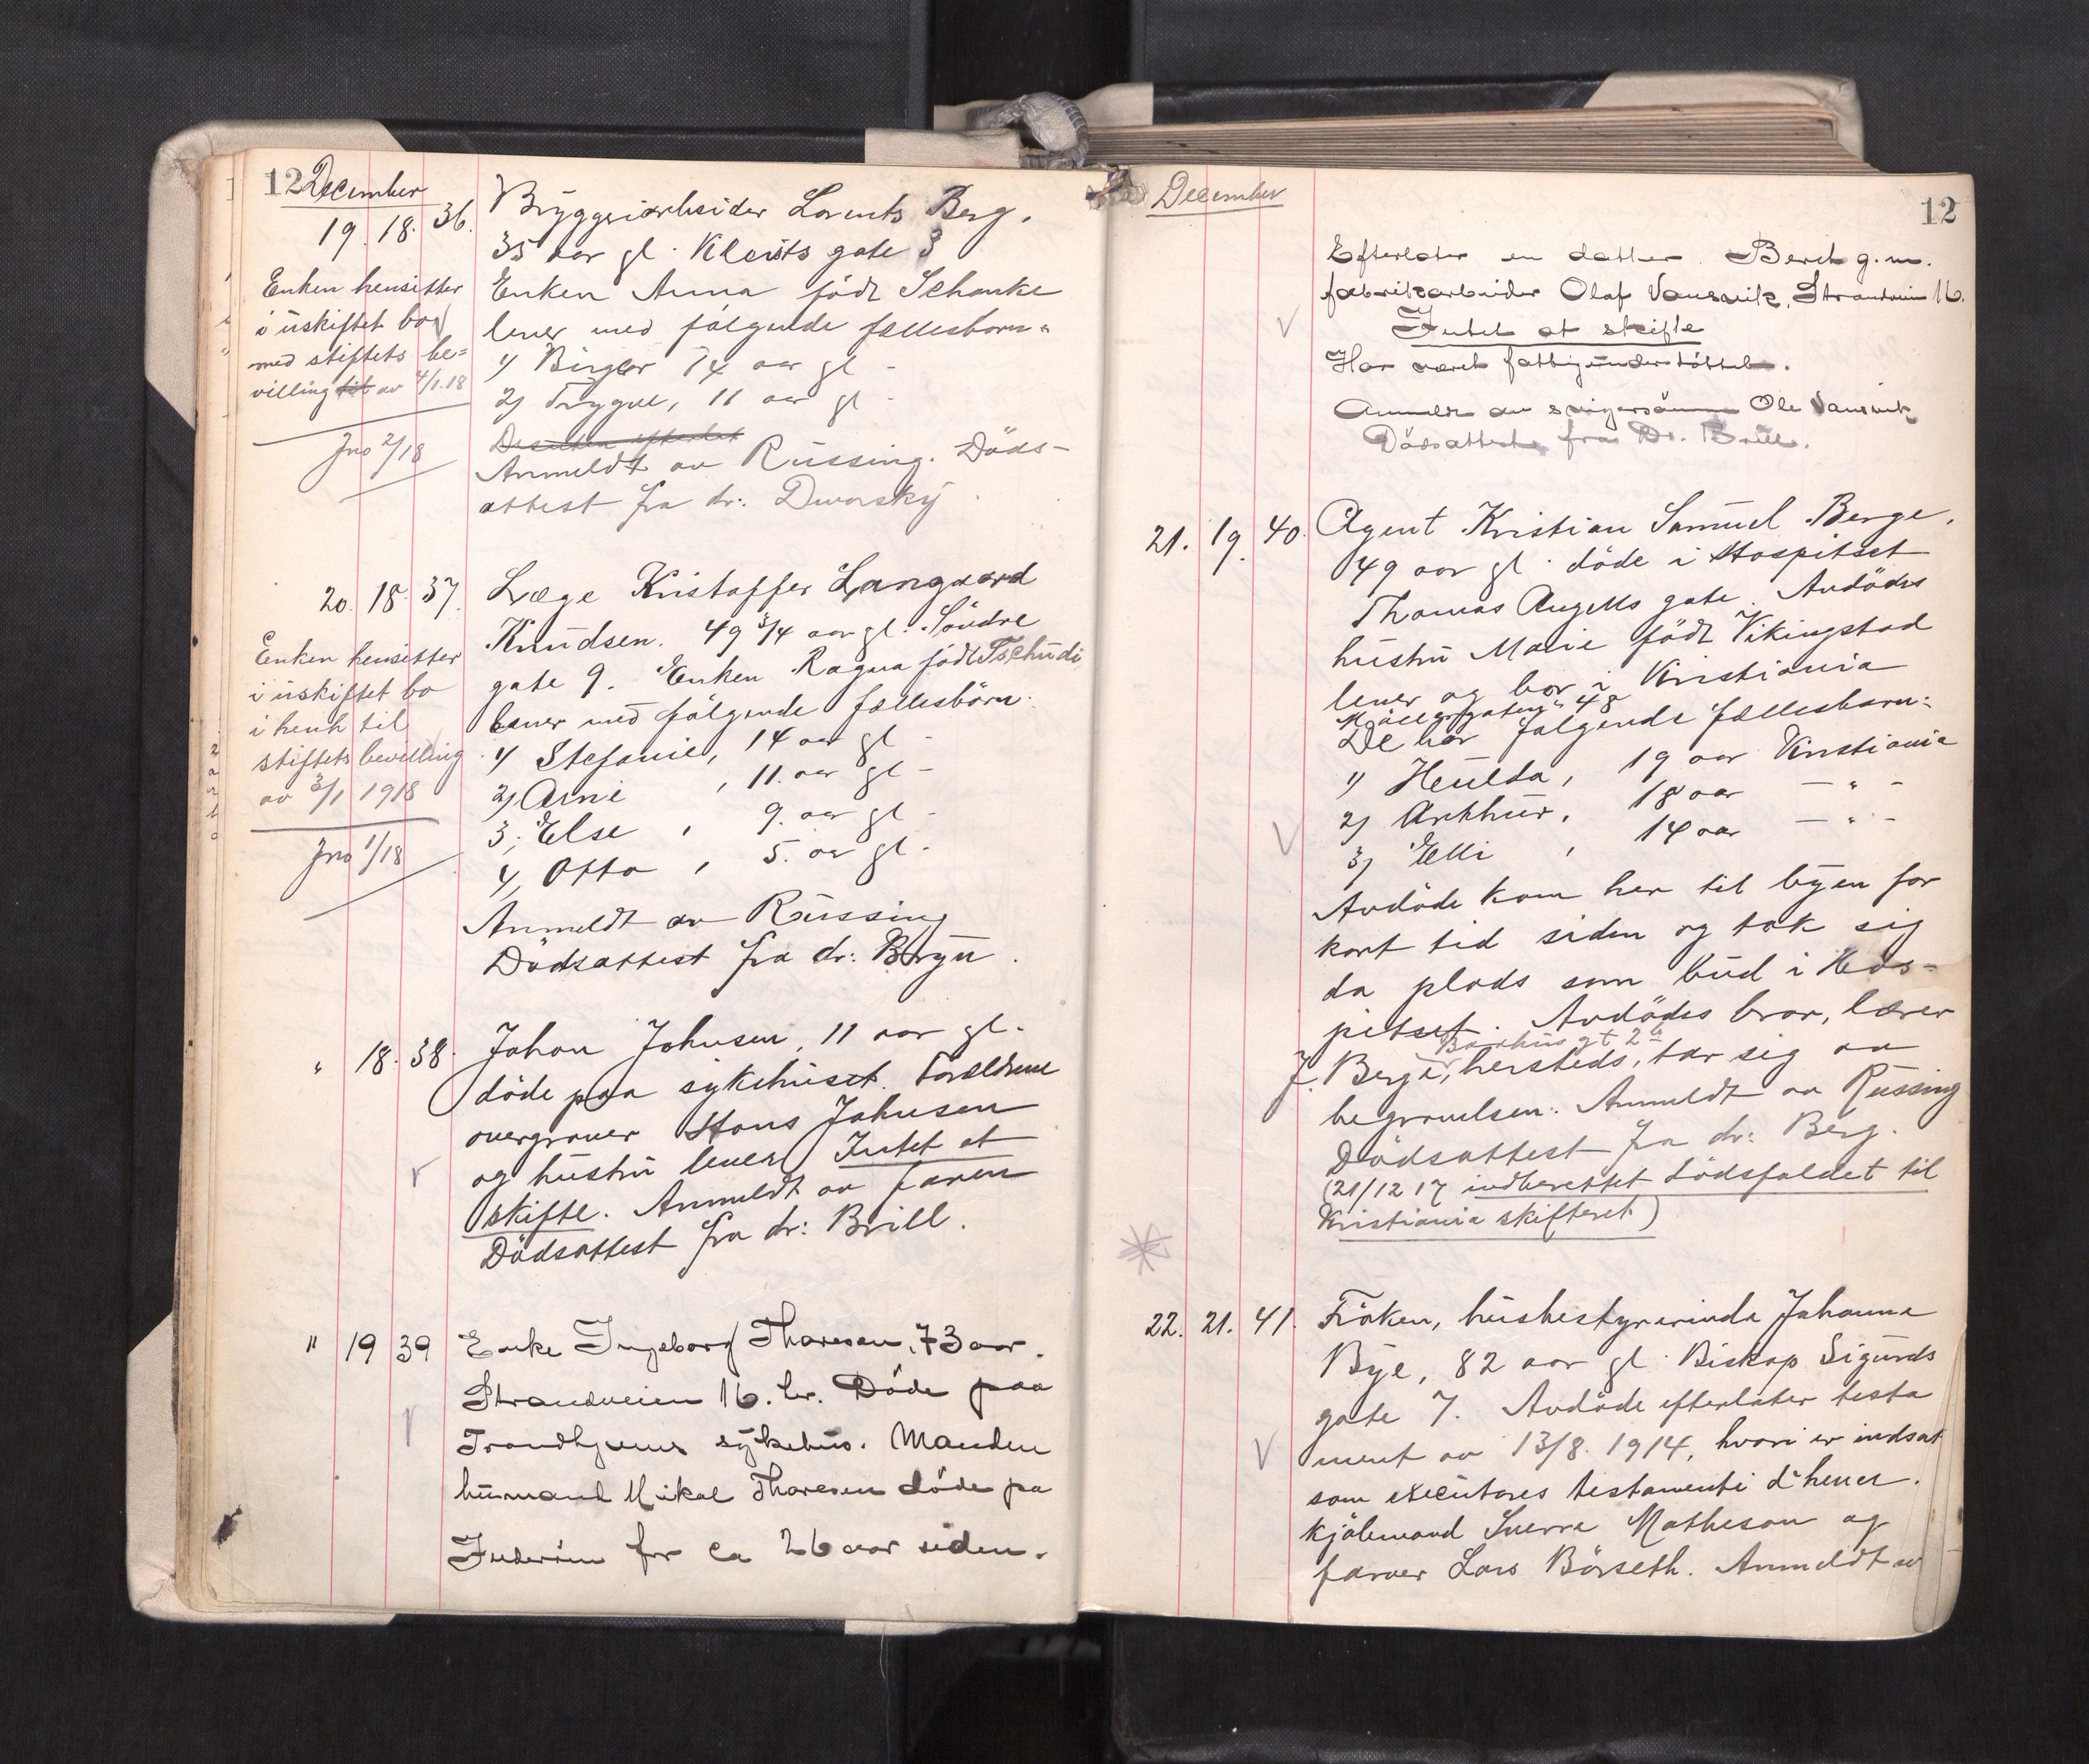 12 December
19. 18. 36. Bryggeriarbeider Lorents Berg.
35 aar gl. Klosts gate 3
Enken Anna födt Schanke
lever med fölgende fællesbarn:
1) Birger 14 aar gl -
2) Trygve, 11 aar gl -
Desuten efterlat
Anmeldt av Rüssing. Döds-
attest fra dr: Dworsky
Enken hensitter
i uskiftet bo
med stiftets be=
villing til av 4/1.18
Jno 2/18
20. 18. 37. Læge Kristoffer Langaard
Knudsen. 49 3/4 aar gl. Söndre
gate 9. Enken Ragna födt Tschudi,
lever med fölgende fællesbörn:
1) Stefanie, 14 aar gl -
2) Arne, 11. aar gl -
3, Else, 9. aar gl -
4, Otto, 5. aar gl -
Anmeldt av Rüssing
Dödsattest fra dr: Bryn.
Enken hensitter
i uskiftet bo
i henh til
stiftets bevilling
av 3/1 1918
Jno 1/18
" 18. 38. Johan Johnsen, 11 aar gl.
döde paa sykehuset. Forældrene
overgraver Hans Johnsen
og hustru lever. Intet at
skifte. Anmeldt av faren
Dödsattest fra dr: Brill.
" 19 39 Enke Ingeborg Thoresen, 73 aar.
Strandveien 16. hr. Döde paa
Trondhjems sykehus. Manden
husmand Mikal Thoresen döde pa
Inderöen for ca 26 aar siden.
December 12
Efterlater en datter Beret g.m.
fabrikarbeider Olaf Vansvik, Strandveien 16.
Intet at skifte
Har været fattigunderstöttet.
Anmeldt av svigersönnen Ole Vansvik
Dödsattest fra Dr. Brill.
21. 19. 40. Agent Kristian Samuel Berge,
49 aar gl. döde i Hospitset
Thomas Angells gate. Avdödes
hustru Marie födt Vikingstad
lever og bor i Kristiania
Möllergaten 48
De har fölgende fællesbarn:
1) Heulda, 19 aar Kristiania
2) Arthur, 18 aar — " -
3) Elli, 14 aar — " -
Avdöde kom her til byen for
kort tid siden og tok sig
da plads som bud i Hos-
pitset. Avdödes bror, lærer
Bakhus gt 2 b
J. Berge, hersteds, tar sig av
begravelsen. Anmeldt av Rüssing
Dödsattest fra dr: Berg.
(21/12 17 indberettet dödsfaldet til
Kristiania skifteret)
22. 21. 41. Fröken, husbestyrerinde Johanna
Bye, 82 aar gl. Biskop Sigurds
gate 7. Avdöde efterlater testa
ment av 13/8. 1914, hvori er indsat
som executores testamenti d'herrer.
kjöbmand Sverre Matheson og
farver Lars Börseth. Anmeldt av